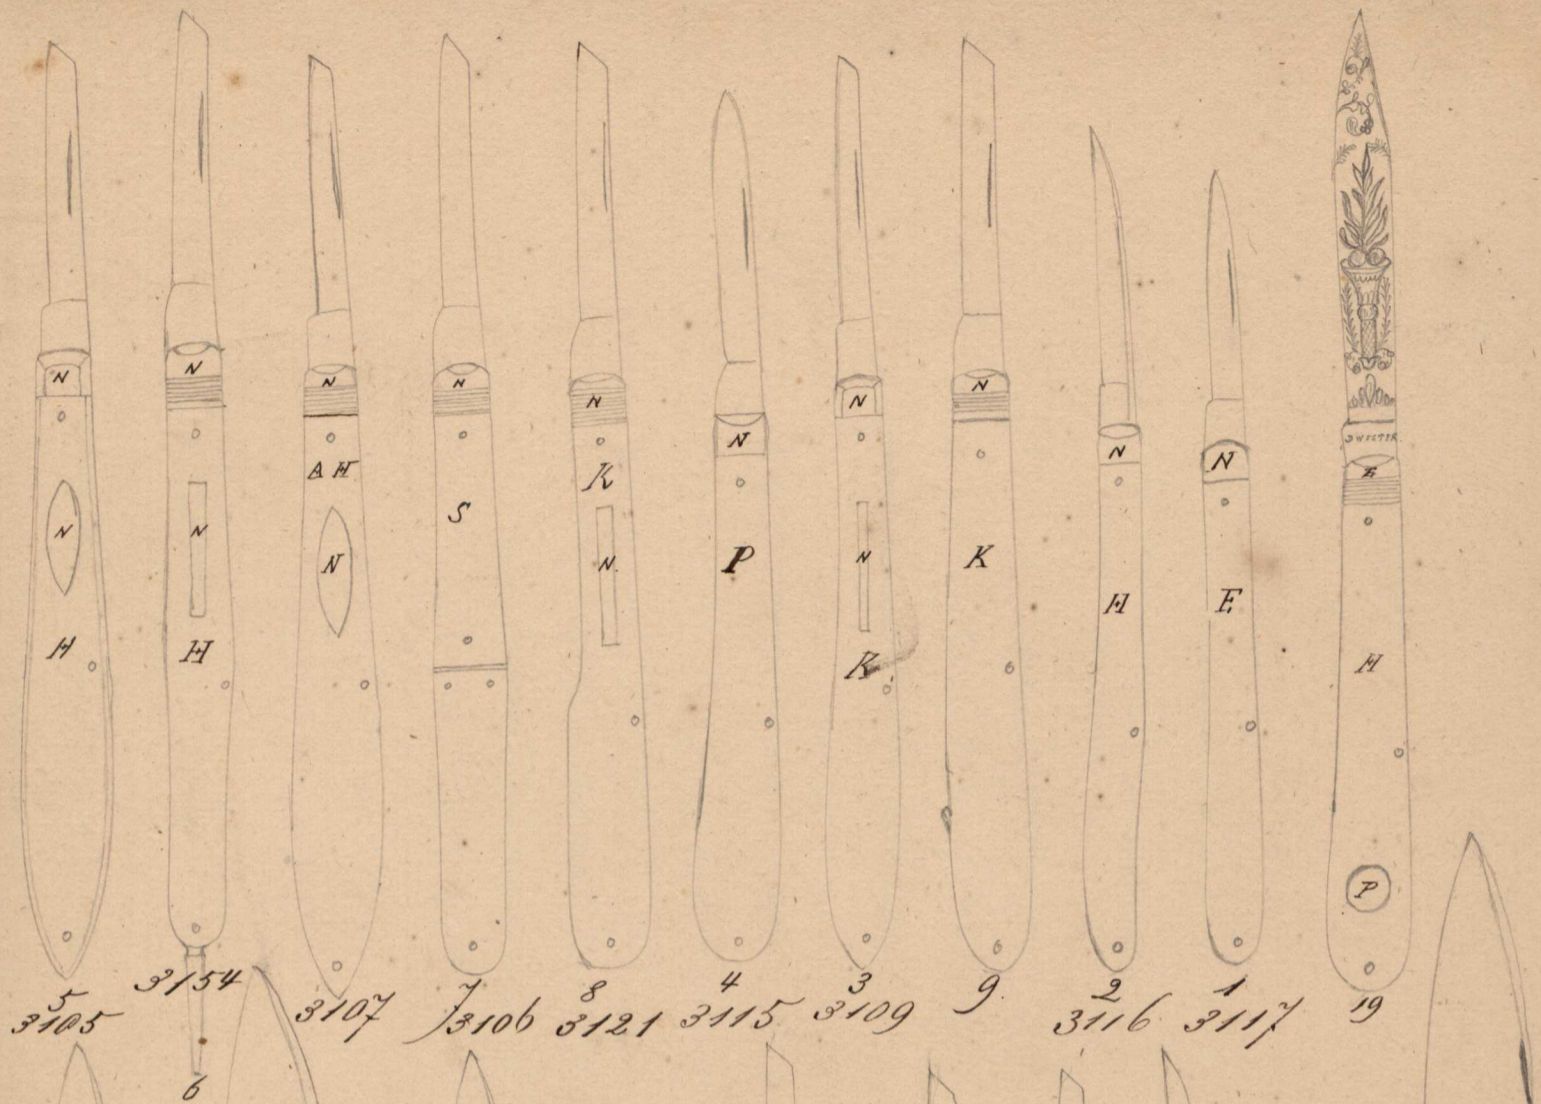 N
N
H
5
3105
N
N
H
3154
6
N
A H
N
3107
N
S
7
3106
N
K
N.
8
3121
N
P
4
3115
N
N
K
3
3109
N
K
9.
N
H
2
3116
N
E
1
3117
H
P
19